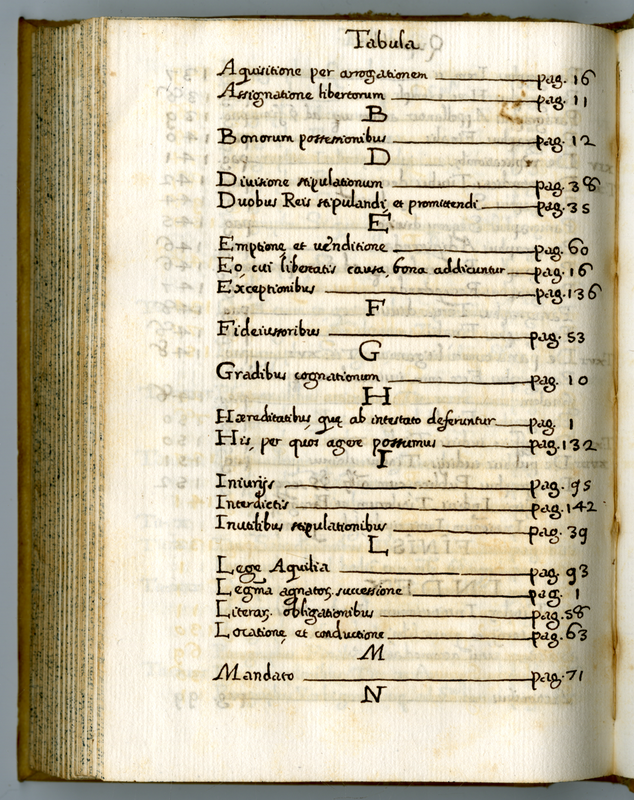 Tabula
Aquisitione per arrogationem pag. 16
Assignatione libertorum pag. 11
B
Bonorum possessionibus pag. 12
D
Divisione stipulationum pag. 38
Duobus Reis stipulandi, et promittendi pag. 35
E
Emptione, et venditione pag. 60
Eo, cui libertatis causa, bona addicuntur pag. 16
Exceptionibus pag. 136
F
Fideiussoribus pag. 53
G
Gradibus cognationum pag. 10
H
Hæreditatibus, quę ab intestato deferuntur pag. 1
His, per quos agere possumus pag. 132
I
Iniurijs pag. 95
Interdictis pag. 142
Inutilibus stipulationibus pag. 39
L
Lege Aquilia pag. 93
Legma agnator, successione pag. 1
Literar. obligationibus pag. 58
Locatione, et conductione pag. 63
M
Mandato pag. 71
N